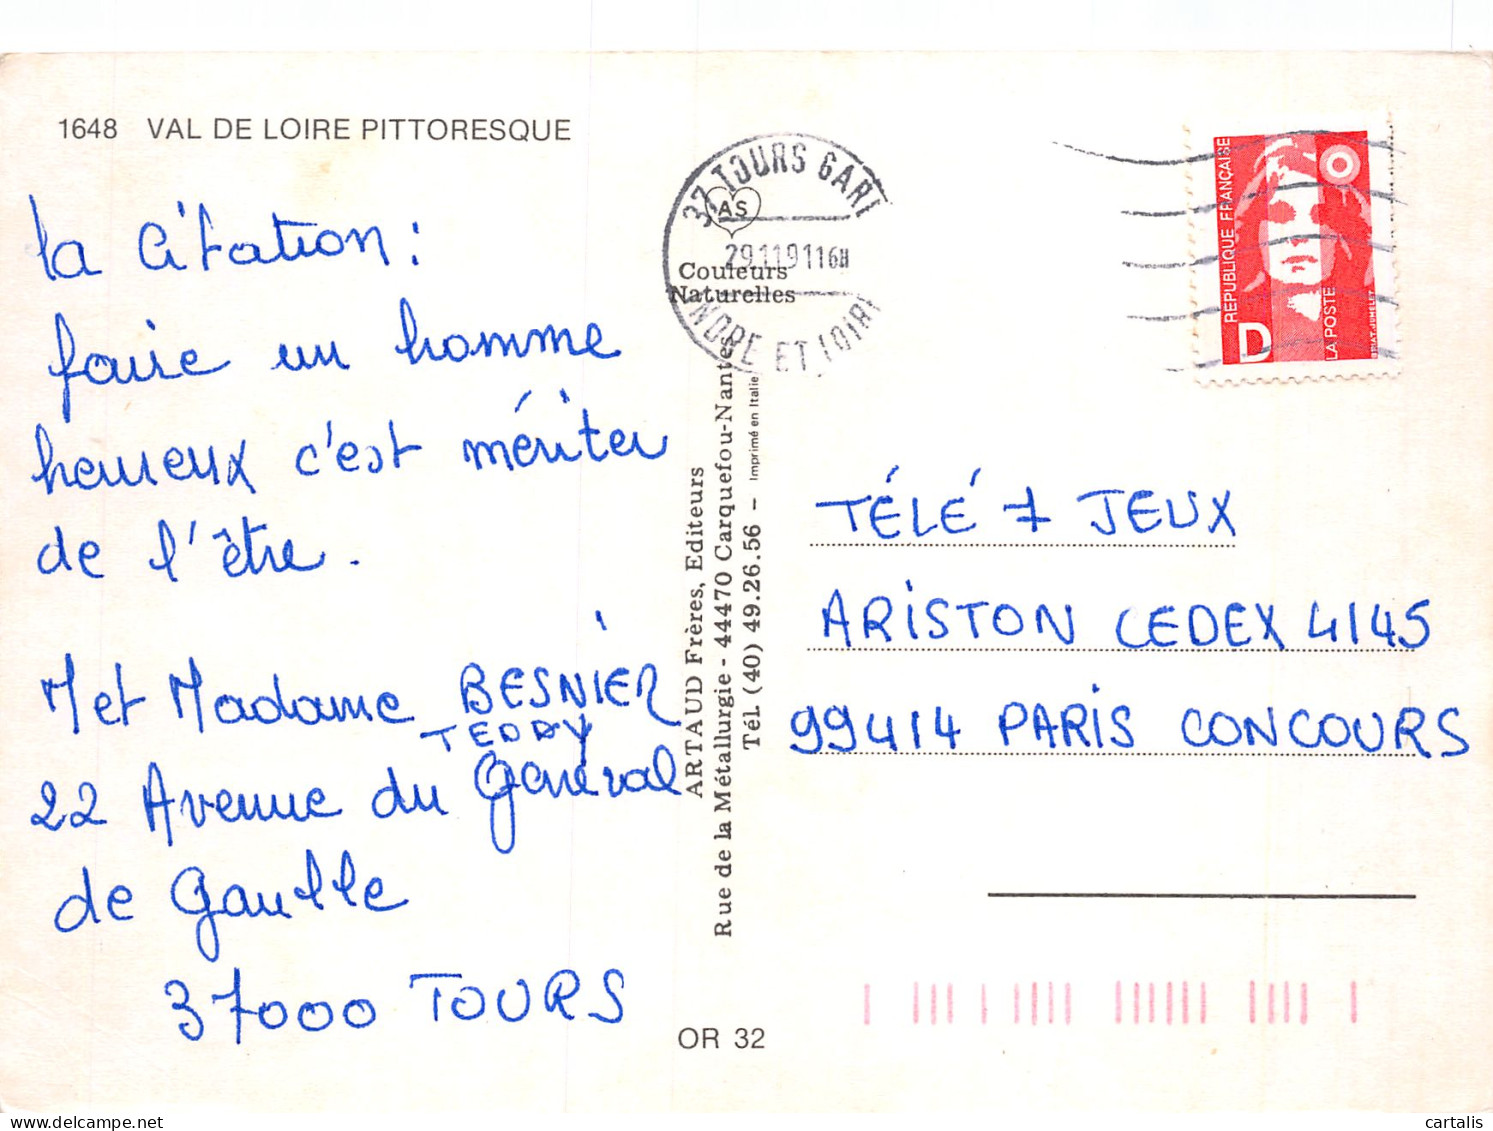 1648 VAL DE LOIRE PITTORESQUE
la Citation :
faire un homme
heureux c'est mériter
de l'être.
M et Madame BESNIER
TEDDY
22 Avenue du Général
de Gaulle
37000 TOURS
37 TOURS GARE
29.11.91 16H
INDRE ET LOIRE
AS
Couleurs
Naturelles
ARTAUD Frères, Editeurs
Rue de la Métallurgie - 44470 Carquefou-Nantes
Tél (40) 49.26.56 - Imprimé en Italie
OR 32
REPUBLIQUE FRANÇAISE
D
LA POSTE
TÉLÉ 7 JEUX
ARISTON CEDEX 4145
99414 PARIS CONCOURS
cartalis.com